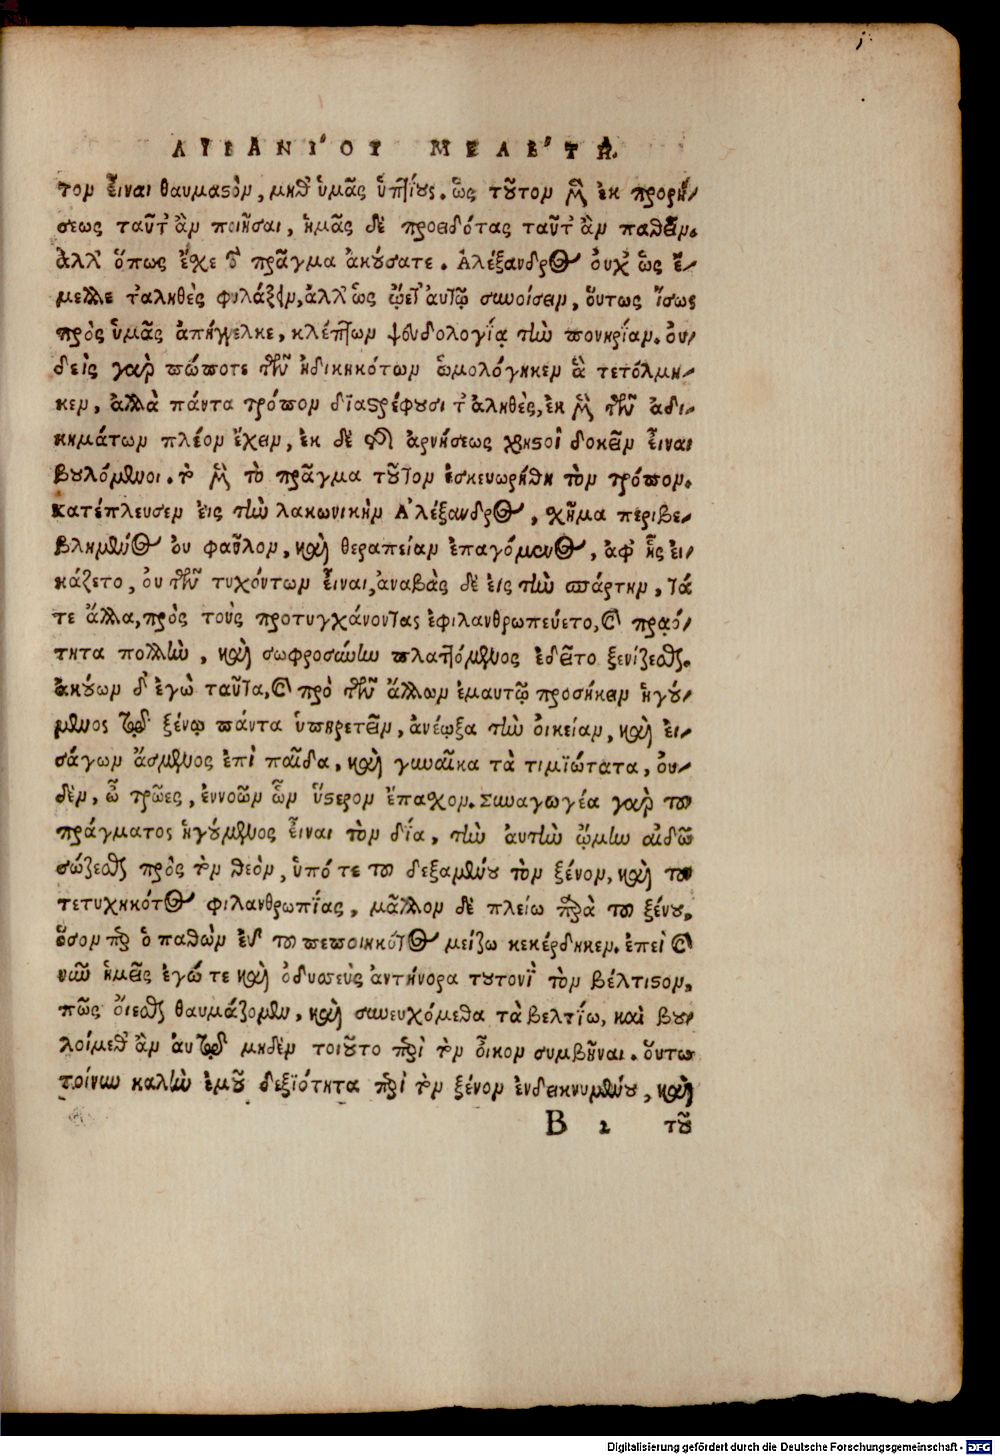 ΛΙΒΑΝΙ'ΟΥ ΜΕΛΕ'ΤΗ.
τον εἶναι θαυμαστὸν, μηθ' ὑμᾶς ὑπίους. ὡς τοῦτον μὲν ἐκ προρή-
σεως ταῦτ' ἂν ποιῆσαι, ἡμᾶς δὲ προειδότας ταῦτ' ἂν παθεῖν.
ἀλλ' ὅπως ἔχε τὸ πρᾶγμα ἀκούσατε. Ἀλέξανδρος οὐχ ὡς ἔ-
μελλε τ' ἀληθὲς φυλάξειν, ἀλλ' ὡς ᾤετ' αὐτῷ συνοίσειν, οὕτως ἴσως
πρὸς ὑμᾶς ἀπήγγελκε, κλέπτων ψευδολογίᾳ τὴν πονηρίαν. οὐ-
δεὶς γὰρ πώποτε τῶν ἠδικηκότων ὡμολόγηκεν ἃ τετόλμη-
κεν, ἀλλὰ πάντα τρόπον διαστρέφουσι τ' ἀληθὲς, ἐκ μὲν τῶν ἀδι-
κημάτων πλέον ἔχειν, ἐκ δὲ τῆς ἀρνήσεως χρηστοὶ δοκεῖν εἶναι
βουλόμενοι. τὸ μὲν τὸ πρᾶγμα τοῦτον ἐσκευωρήθη τὸν τρόπον.
κατέπλευσεν εἰς τὴν λακωνικὴν Ἀλέξανδρος, χῆμα περιβε-
βλημένος οὐ φαῦλον, καὶ θεραπείαν ἐπαγόμενος, ἀφ' ἧς εἰ-
κάζετο, οὐ τῶν τυχόντων εἶναι, ἀναβὰς δὲ εἰς τὴν σπάρτην, τά
τε ἄλλα, πρὸς τοὺς προτυγχάνοντας ἐφιλανθρωπεύετο, καὶ πρᾳό-
τητα πολλὴν, καὶ σωφροσύνην πλαττόμενος ἐδεῖτο ξενίζεσθαι.
ἀκούων δ' ἐγὼ ταῦτα, καὶ πρὸ τῶν ἄλλων ἐμαυτῷ προσήκειν ἡγού-
μενος τῷ ξένῳ πάντα ὑπηρετεῖν, ἀνέῳξα τὴν οἰκείαν, καὶ εἰ-
σάγων ἄσμενος ἐπὶ παῖδα, καὶ γυναῖκα τὰ τιμιώτατα, οὐ-
δὲν, ὦ τρῶες, ἐννοῶν ὧν ὕστερον ἔπασχον. Συναγωγέα γὰρ τοῦ
πράγματος ἡγούμενος εἶναι τὸν δία, τὴν αὐτὴν ᾤμην αἰδῶ
σώζεσθαι πρὸς τὸν θεὸν, ὑπό τε τοῦ δεξαμένου τὸν ξένον, καὶ τοῦ
τετυχηκότος φιλανθρωπίας, μᾶλλον δὲ πλείω παρὰ τοῦ ξένου,
ὅσον περ ὁ παθὼν εὖ τοῦ πεποιηκότος μείζω κεκέρδηκεν. ἐπεὶ καὶ
νῦν ἡμεῖς ἐγώ τε καὶ ὀδυσσεὺς ἀντήνορα τουτονὶ τὸν βέλτιστον,
πῶς οἴεσθε θαυμάζομεν, καὶ συνευχόμεθα τὰ βελτίω, καὶ βου-
λοίμεθ' ἂν αὐτῷ μηδὲν τοιοῦτο περὶ τὸν οἶκον συμβῆναι. οὕτω
τοίνυν καλὴν ἐμοῦ δεξιότητα περὶ τὸν ξένον ἐνδεικνυμένου, καὶ
B 2 τοῦ
Digitalisierung gefördert durch die Deutsche Forschungsgemeinschaft - DFG